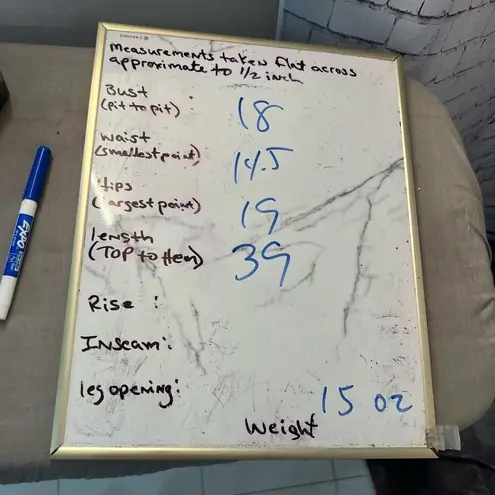 measurements taken flat across
approximate to 1/2 inch
Bust :
(pit to pit) 18
waist :
(smallest point) 14.5
Hips
(largest point) 19
Length
(TOP to Hem) 39
Rise :
Inseam :
leg opening :
15 oz
Weight
EXPO